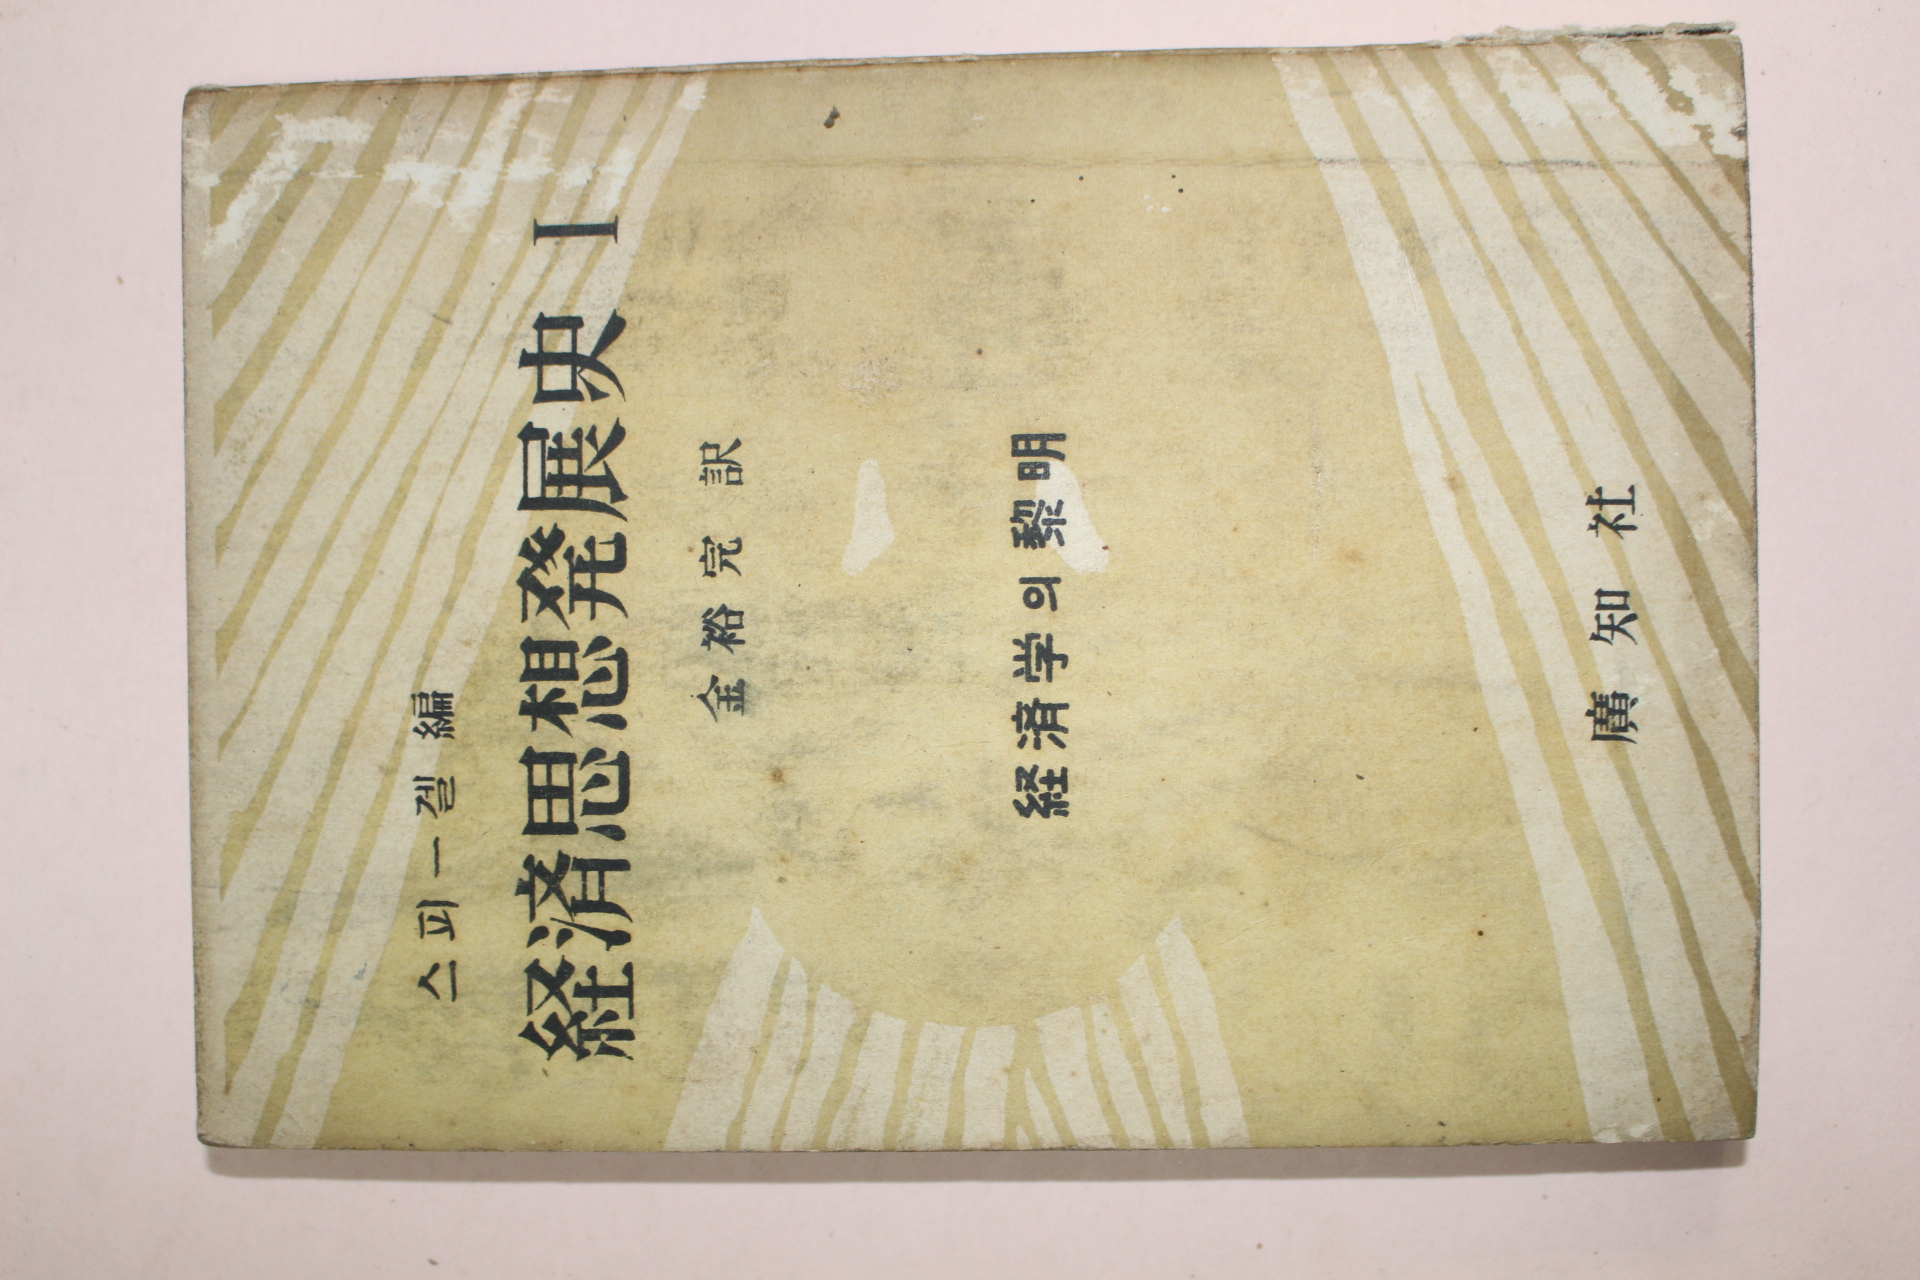 스피ー겔 編
経済思想発展史 I
金裕完 訳
経済学의 黎明
廣知社